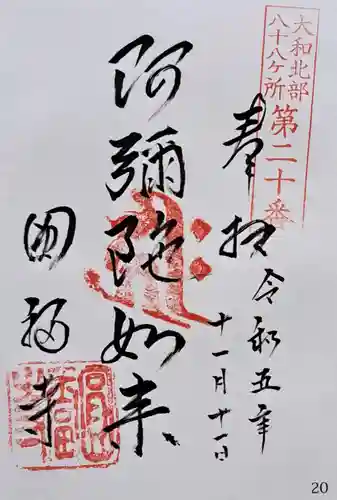 大和北部
八十八ケ所
第二十番
奉拝
令和五年
十一月廿一日
阿彌陀如来
圓福寺
20